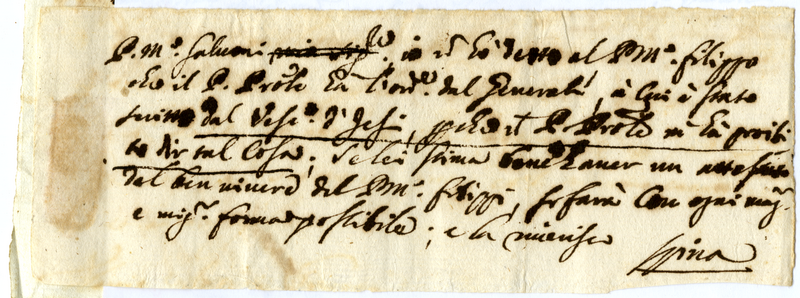 P. M.º Salvoni io ñ hò detto al P. M.º Filippo
che il P. Pro.le hà l'ord.e dal Generale, à lui è stato
scritto dal Vesc.º d' Jesi, che il P. Pro.le mi hà proibi
to dir tal Cosa; Se lei stima bene haver un attestato
del ben vivere del P. M.º Filippi, si farà con ogni mag.r
e mig.r forma possibile; e la riverisco
Spina